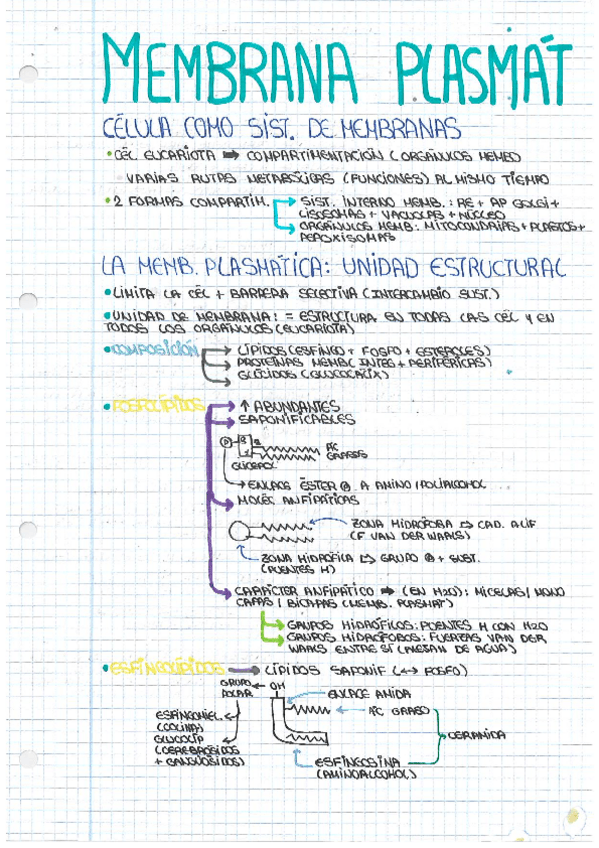 MEMBRANA PLASMÁT
CÉLULA COMO SIST. DE MEMBRANAS
• CÉL EUCARIOTA ➡ COMPARTIMENTACIÓN (ORGÁNULOS MEMB)
VARIAS RUTAS METABÓLICAS (FUNCIONES) AL MISMO TIEMPO
• 2 FORMAS COMPARTIM. → SIST. INTERNO MEMB.: RE + AP GOLGI +
LISOSOMAS + VACUOLAS + NÚCLEO
→ ORGÁNULOS MEMB: MITOCONDRIAS + PLASTOS +
PEROXISOMAS
LA MEMB. PLASMÁTICA: UNIDAD ESTRUCTURAL
• LIMITA LA CÉL + BARRERA SELECTIVA (INTERCAMBIO SUST.)
• UNIDAD DE MEMBRANA: = ESTRUCTURA EN TODAS LAS CÉL Y EN
TODOS LOS ORGÁNULOS (EUCARIOTA)
• COMPOSICIÓN → LÍPIDOS (ESFINGO + FOSFO + ESTEROLES)
→ PROTEÍNAS MEMB (INTEG + PERIFÉRICAS)
→ GLÚCIDOS (GLUCOCÁLIX)
• FOSFOLÍPIDOS → ↑ ABUNDANTES
→ SAPONIFICABLES
P 3 2
1
ÁC
GRASOS
GLICEROL
→ ENLACE ÉSTER P A AMINO/POLIALCOHOL
→ MOLÉC ANFIPÁTICAS
ZONA HIDRÓFOBA ⇨ CAD. ALIF
(F VAN DER WAALS)
ZONA HIDRÓFILA ⇨ GRUPO P + SUST.
(PUENTES H)
→ CARÁCTER ANFIPÁTICO ➡ (EN H2O): MICELAS/MONO
CAPAS/BICAPAS (MEMB. PLASMÁT)
→ GRUPOS HIDRÓFILOS: PUENTES H CON H2O
→ GRUPOS HIDRÓFOBOS: FUERZAS VAN DER
WAALS ENTRE SÍ (ALEJAN DE AGUA)
• ESFINGOLÍPIDOS → LÍPIDOS SAPONIF (↔ FOSFO)
GRUPO ← OH
POLAR
ENLACE AMIDA
ÁC GRASO
ESFINGOMIEL.
(COLINA)
GLUCOLÍP
(CEREBRÓSIDOS
+ GANGLIÓSIDOS)
CERAMIDA
ESFINGOSINA
(AMINOALCOHOL)